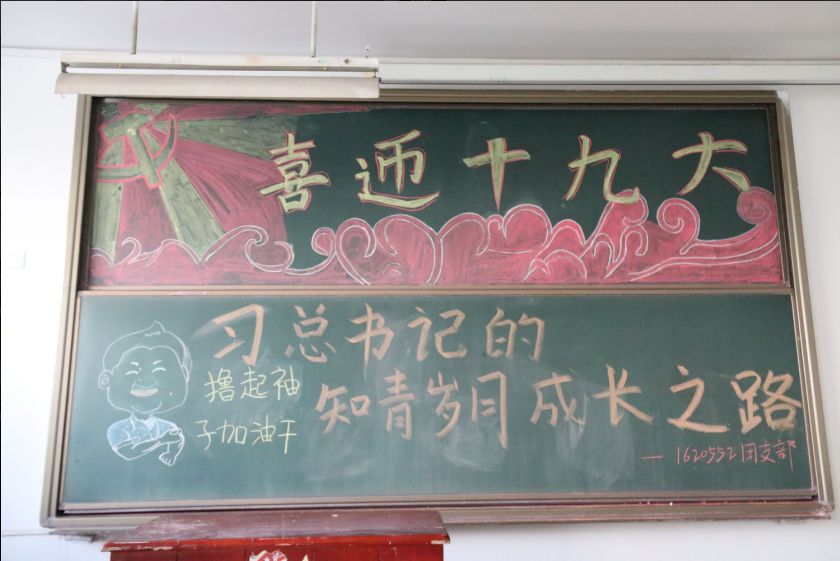 喜迎十九大
习总书记的
知青岁月成长之路
撸起袖
子加油干
— 1620552团支部